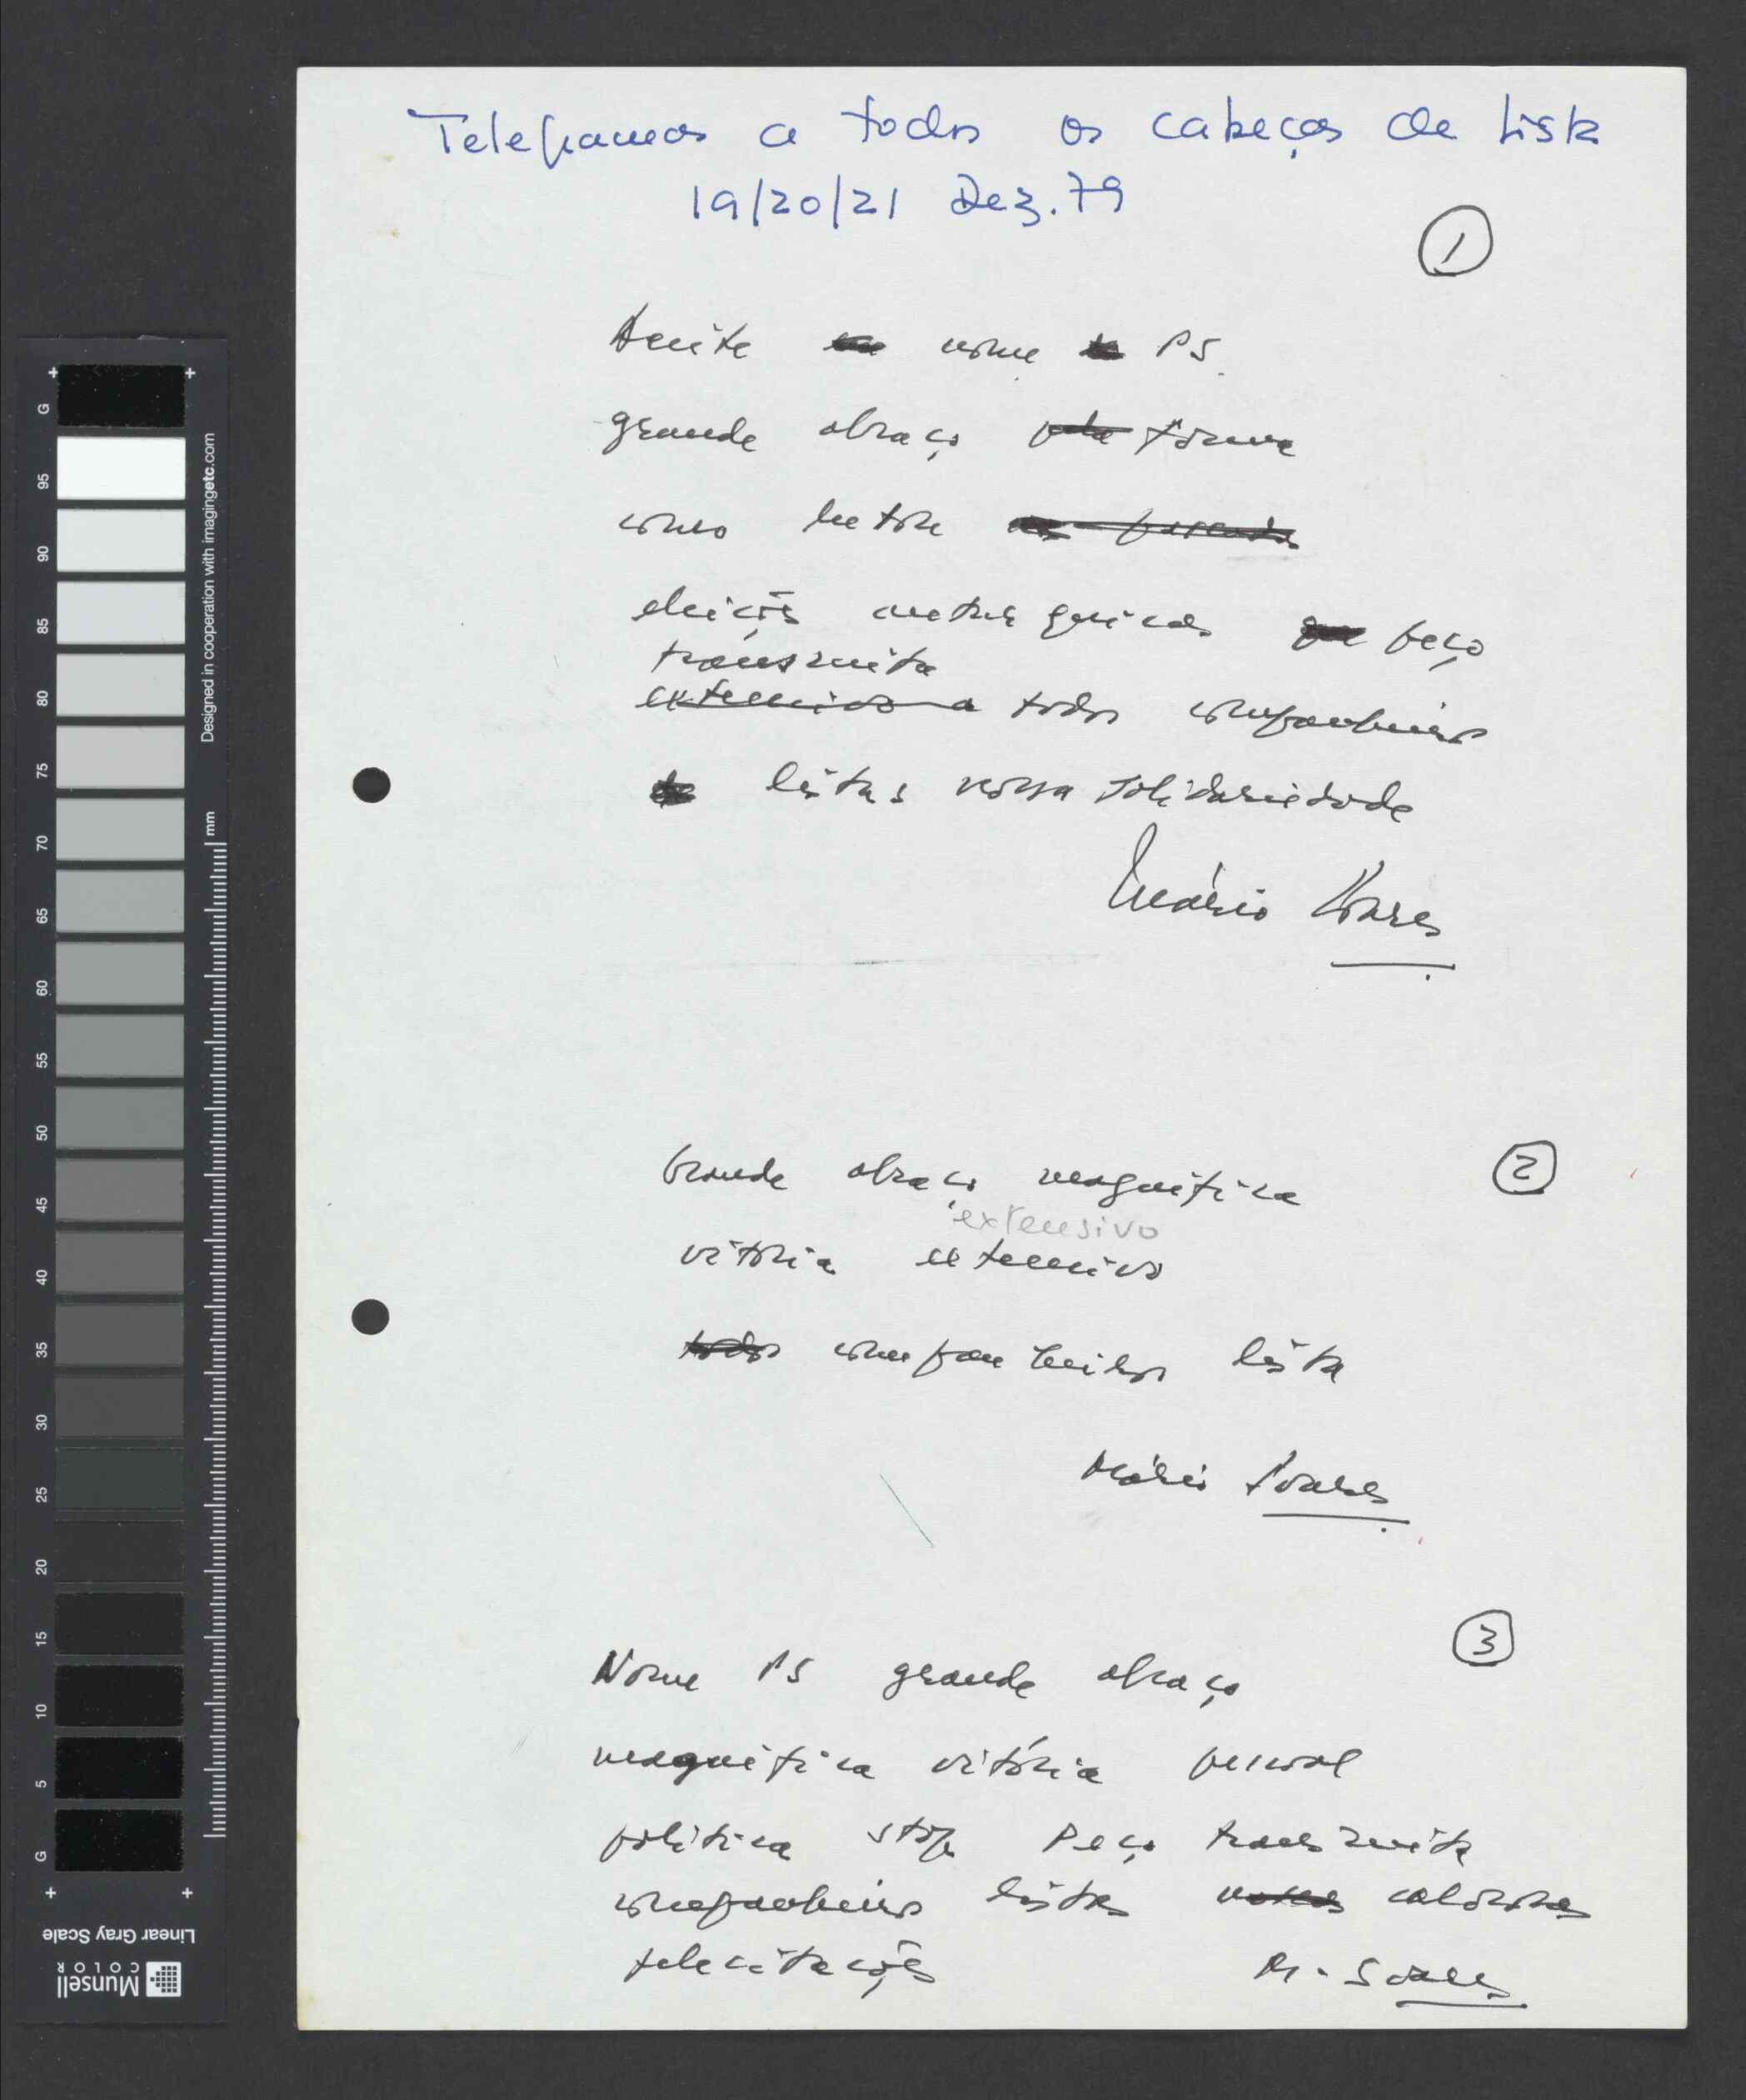 Telegramas a todos os cabeças de Lista
19/20/21 Dez. 79
1
Aceite nome PS.
grande abraço forma
como
eleições autárquicas peço
transmita
extensivo a todos companheiros
listas nossa solidariedade
Mário Soares
2
Grande abraço magnífica
extensivo
vitória extensivo
todos companheiros lista
Mário Soares
3
Nome PS grande abraço
magnífica vitória pessoal
política stop Peço transmita
companheiros lista calorosas
felicitações M. Soares
G
95
90
85
80
75
70
65
60
55
50
45
40
35
30
25
20
15
10
5
G
Designed in cooperation with imagingetc.com
mm
Linear Gray Scale
Munsell
COLOR